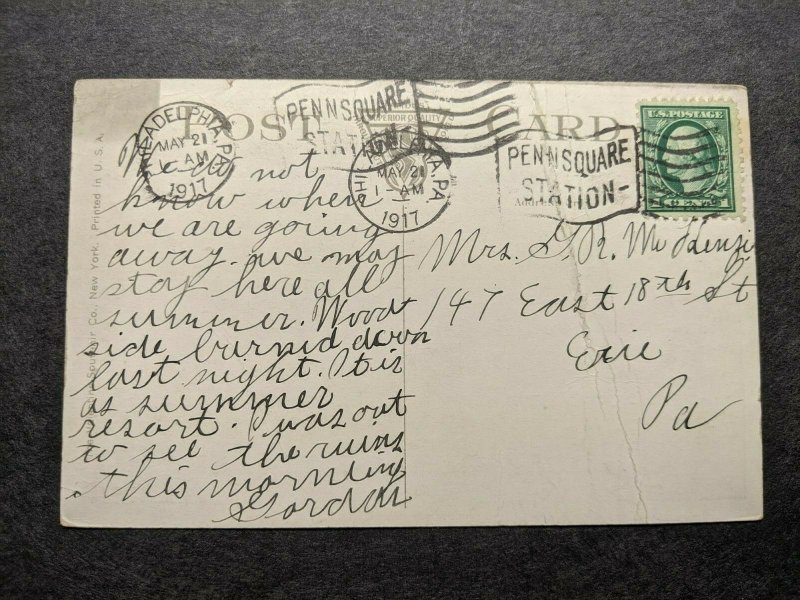 POST CARD
PHILADELPHIA, PA.
MAY 21
1 AM
1917
PENN SQUARE
STATION
PHILADELPHIA, PA.
MAY 21
1 - AM
1917
PENN SQUARE
STATION-
U.S. POSTAGE
1 CENT 1
SUPERIOR QUALITY
Souvenir Co., New York. Printed in U.S.A.
We do not
know when
we are going
away. we may
stay here all
summer. Wood
side burned down
last night. It is
as summer
resort. I was out
to see the ruins
this morning
Gordon
Mrs. G. R. McKenzie
147 East 18th St
Erie
Pa